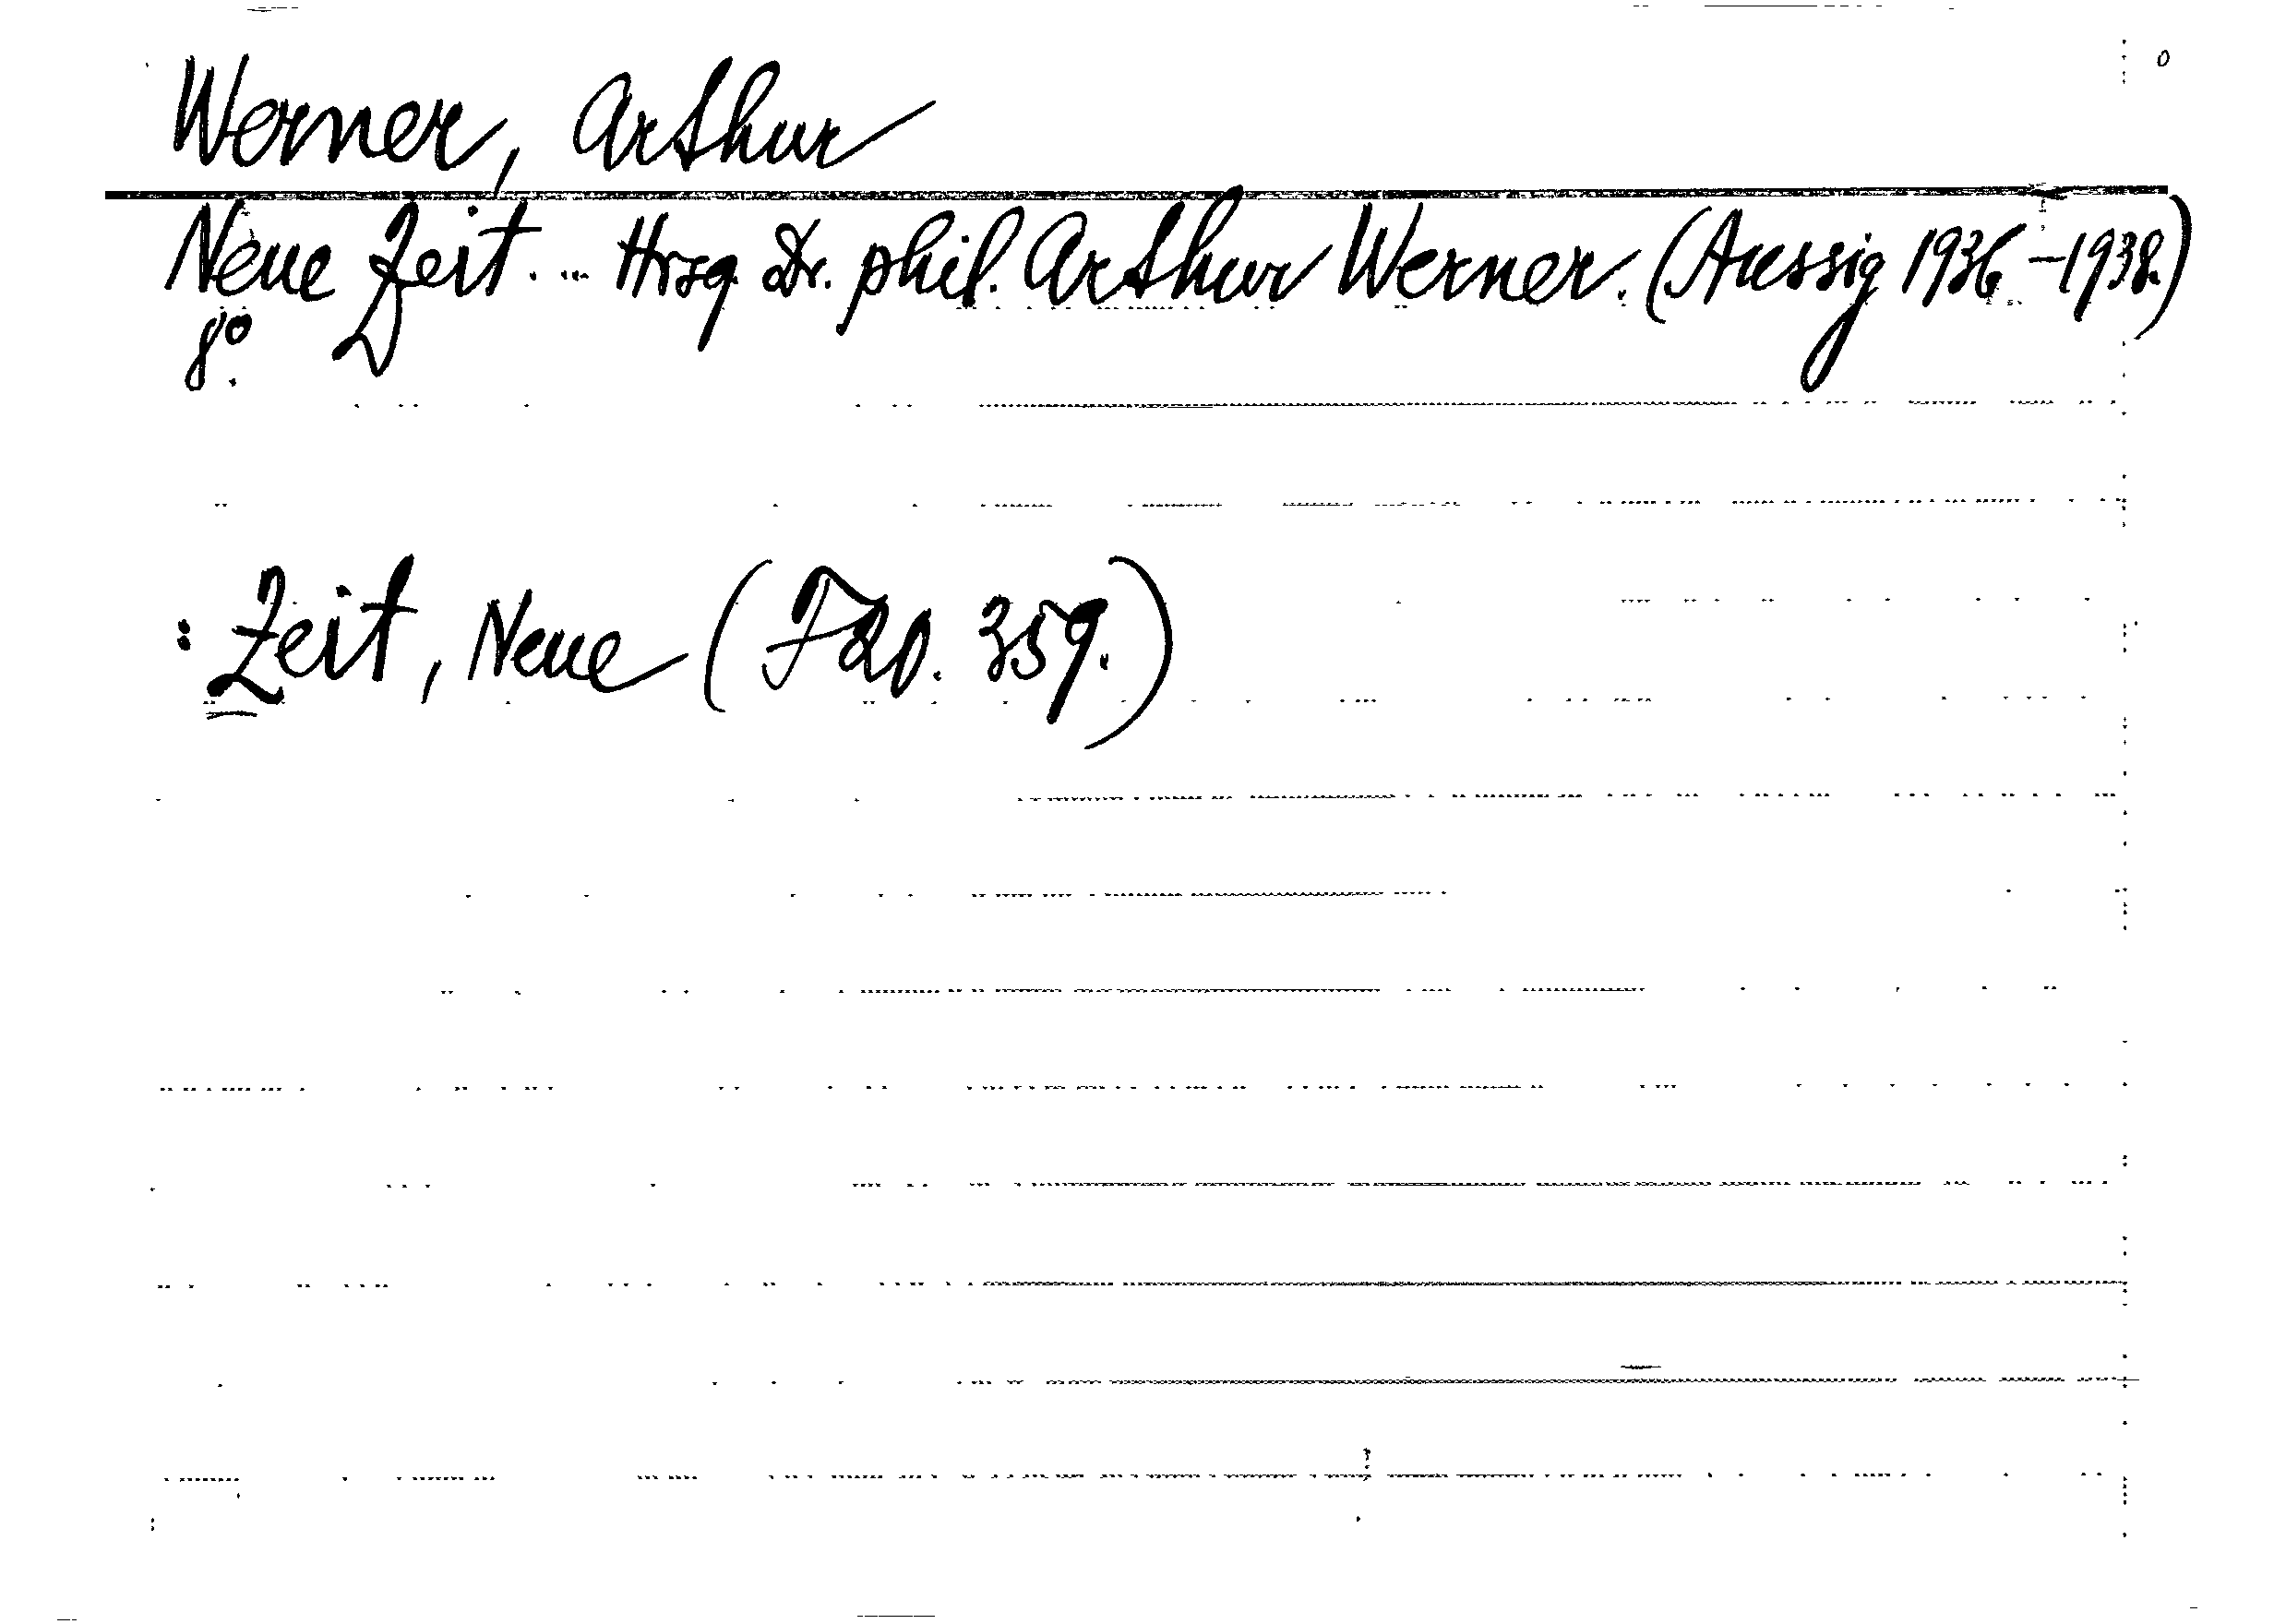 Werner, Arthur
Neue Zeit. ... Hrsg. Dr. phil. Arthur Werner. (Aussig 1936-1938.)
8°.
: Zeit, Neue (J 20. 359.)